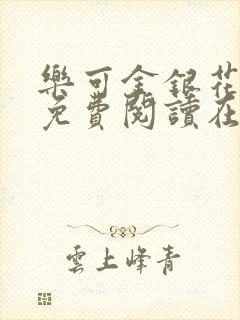 樂可金銀花
免費閱讀在
雲上峰青